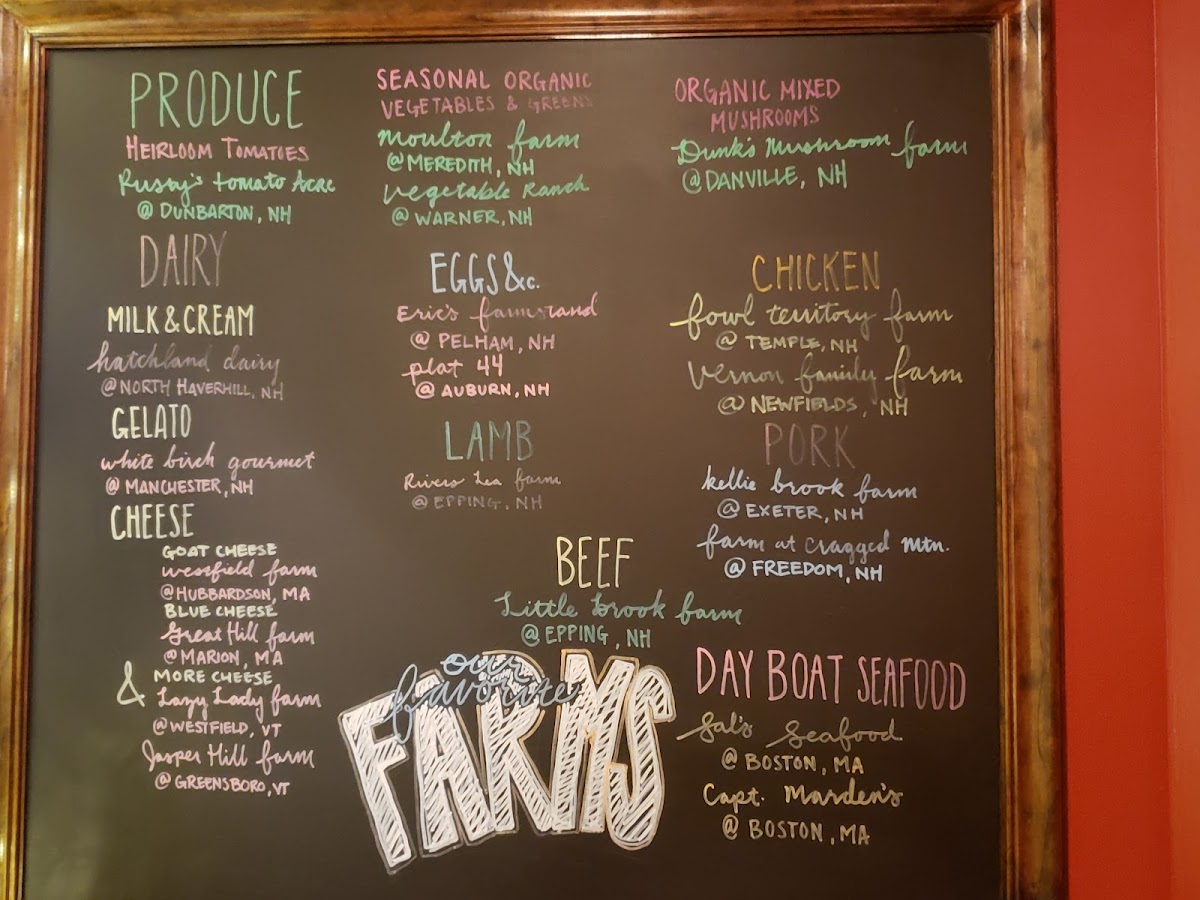 PRODUCE
HEIRLOOM TOMATOES
Rusty's tomato Acre
@ DUNBARTON, NH
SEASONAL ORGANIC
VEGETABLES & GREENS
moulton farm
@ MEREDITH, NH
vegetable Ranch
@ WARNER, NH
ORGANIC MIXED
MUSHROOMS
Dunk's Mushroom farm
@ DANVILLE, NH
DAIRY
MILK & CREAM
hatchland dairy
@ NORTH HAVERHILL, NH
GELATO
white birch gourmet
@ MANCHESTER, NH
CHEESE
GOAT CHEESE
westfield farm
@ HUBBARDSON, MA
BLUE CHEESE
Great Hill farm
@ MARION, MA
& MORE CHEESE
Lazy Lady farm
@ WESTFIELD, VT
Jasper Hill farm
@ GREENSBORO, VT
EGGS &c.
Eric's farmstand
@ PELHAM, NH
plat 44
@ AUBURN, NH
LAMB
Rivers Lea farm
@ EPPING, NH
CHICKEN
fowl territory farm
@ TEMPLE, NH
Vernon family farm
@ NEWFIELDS, NH
PORK
kellie brook farm
@ EXETER, NH
farm at cragged mtn.
@ FREEDOM, NH
BEEF
Little brook farm
@ EPPING, NH
our
favorite
FARMS
DAY BOAT SEAFOOD
Sal's Seafood
@ BOSTON, MA
Capt. Marden's
@ BOSTON, MA